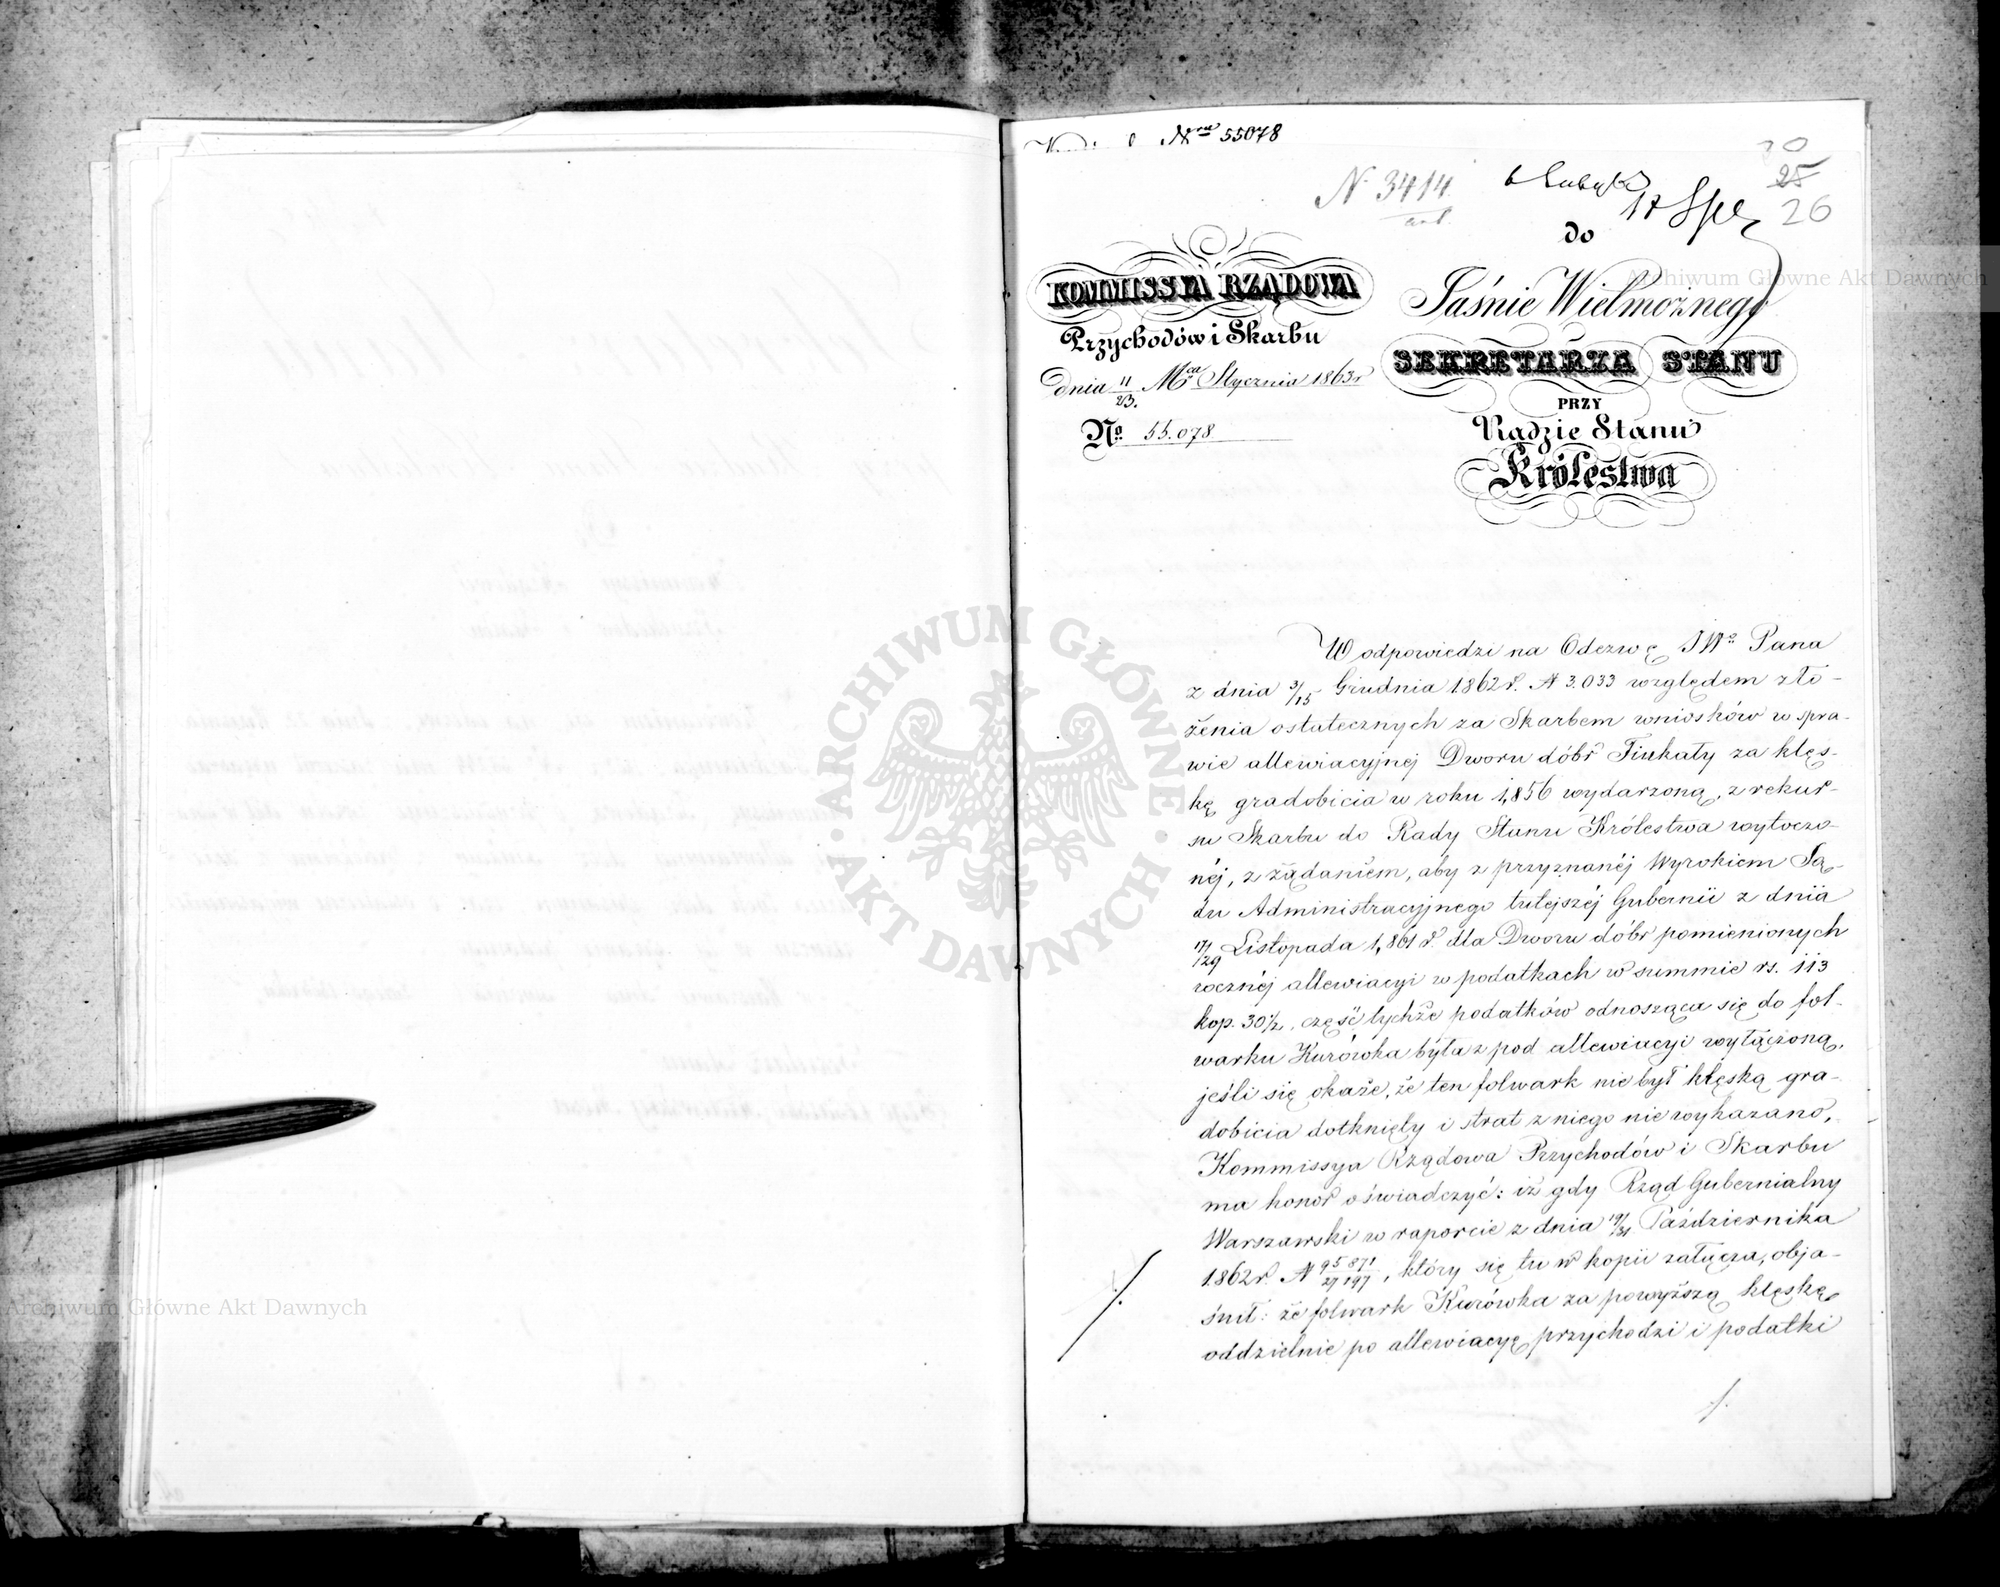 Nra 55078
N 3414
20
25
26
do
KOMMISSYA RZĄDOWA
Przychodów i Skarbu
dnia 11/23. Mca Stycznia 1863 r
No 55.078
Jaśnie Wielmożnego
SEKRETARZA STANU
PRZY
Radzie Stanu
Królestwa
W odpowiedzi na Odezwę JWo Pana
z dnia 3/15 Grudnia 1862 r. N 3.033 względem zło-
żenia ostatecznych za Skarbem wniosków w spra-
wie allewiacyjnej Dworu dóbr Tiukały za klęs-
kę gradobicia w roku 1,856 wydarzoną, z rekur-
su Skarbu do Rady Stanu Królestwa wytoczo-
néj, z żądaniem, aby z przyznanéj Wyrokiem Są-
du Administracyjnego tutejszéj Gubernii z dnia
17/29 Listopada 1,861 r. dla Dworu dóbr pomienionych
rocznéj allewiacyi w podatkach w summie rs. 113
kop. 30 1/2, część tychże podatków odnosząca się do fol-
warku Kurówka była z pod allewiacyi wyłączoną,
jeśli się okaże, że ten folwark nie był klęską gra-
dobicia dotknięty i strat z niego nie wykazano,
Kommissya Rządowa Przychodów i Skarbu
ma honor oświadczyć: iż gdy Rząd Gubernialny
Warszawski w raporcie z dnia 19/31 Października
1862 r. N 95871/27197, który się tu w kopii załącza, obja-
śnił: że folwark Kurówka za powyższą klęskę
oddzielnie po allewiacyę przychodzi i podatki
Archiwum Główne Akt Dawnych
ARCHIWUM GŁÓWNE AKT DAWNYCH
Archiwum Główne Akt Dawnych